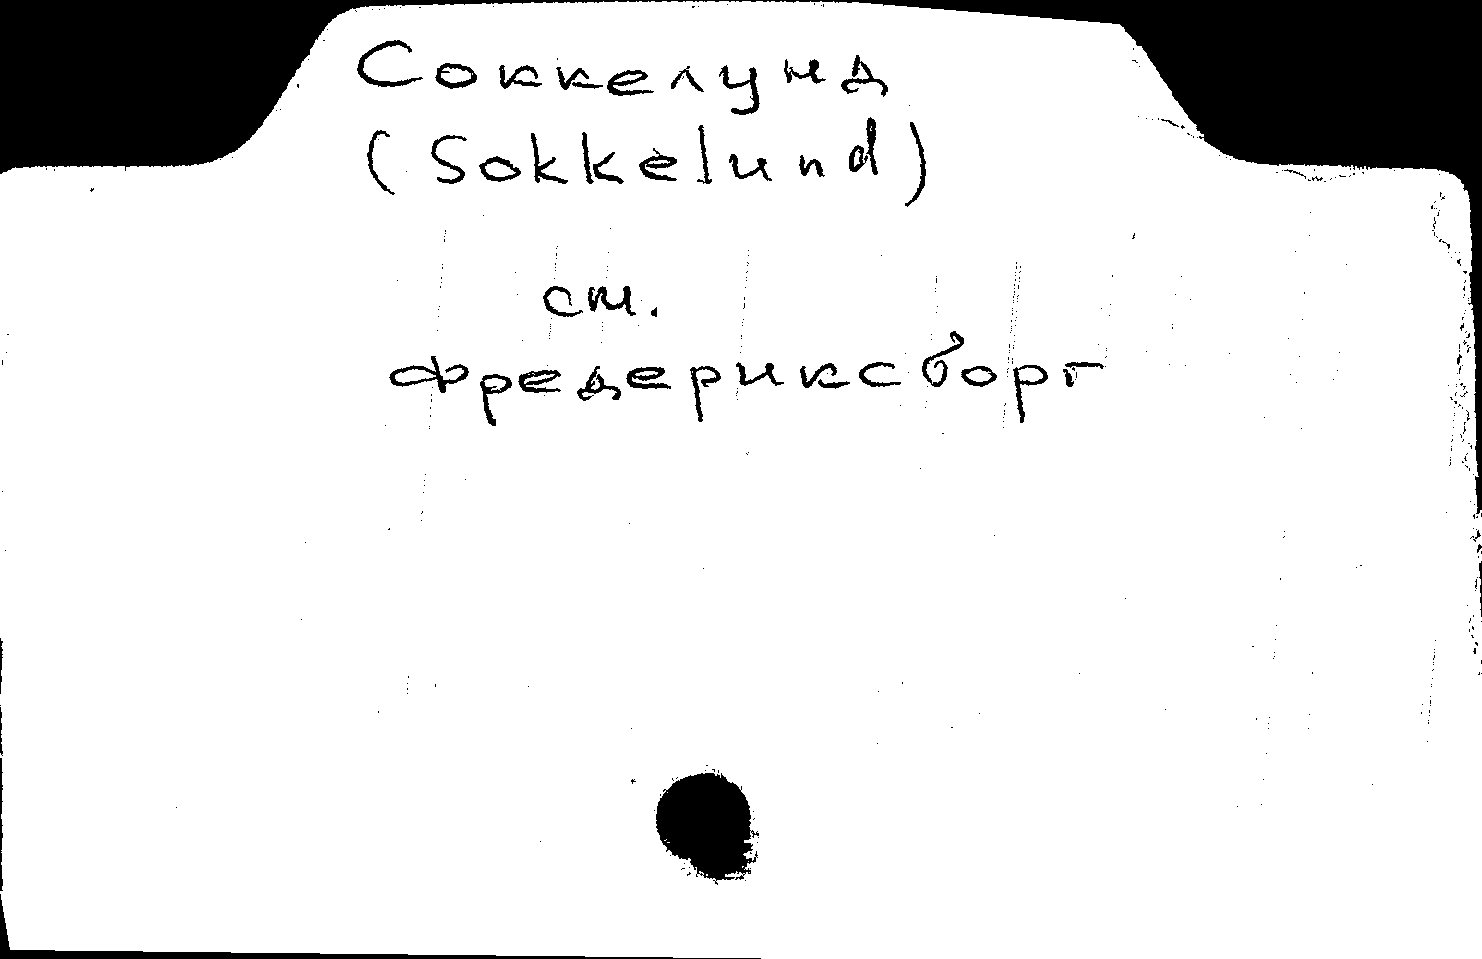 Соккелунд
(Sokkelund)
см.
Фредериксборг